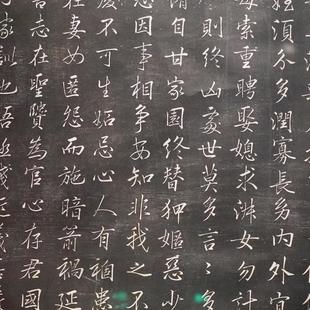 姪須分多潤寡長幼內外宜
毋索重聘娶媳求淑女勿計
則終凶處世莫多言〻多
惰自甘家園終替狎惡少
忍因事相爭安知非我之不
慶不可生妬忌心人有禍患
在妻女匿怨而施暗箭禍延
書志在聖賢為官心存君國